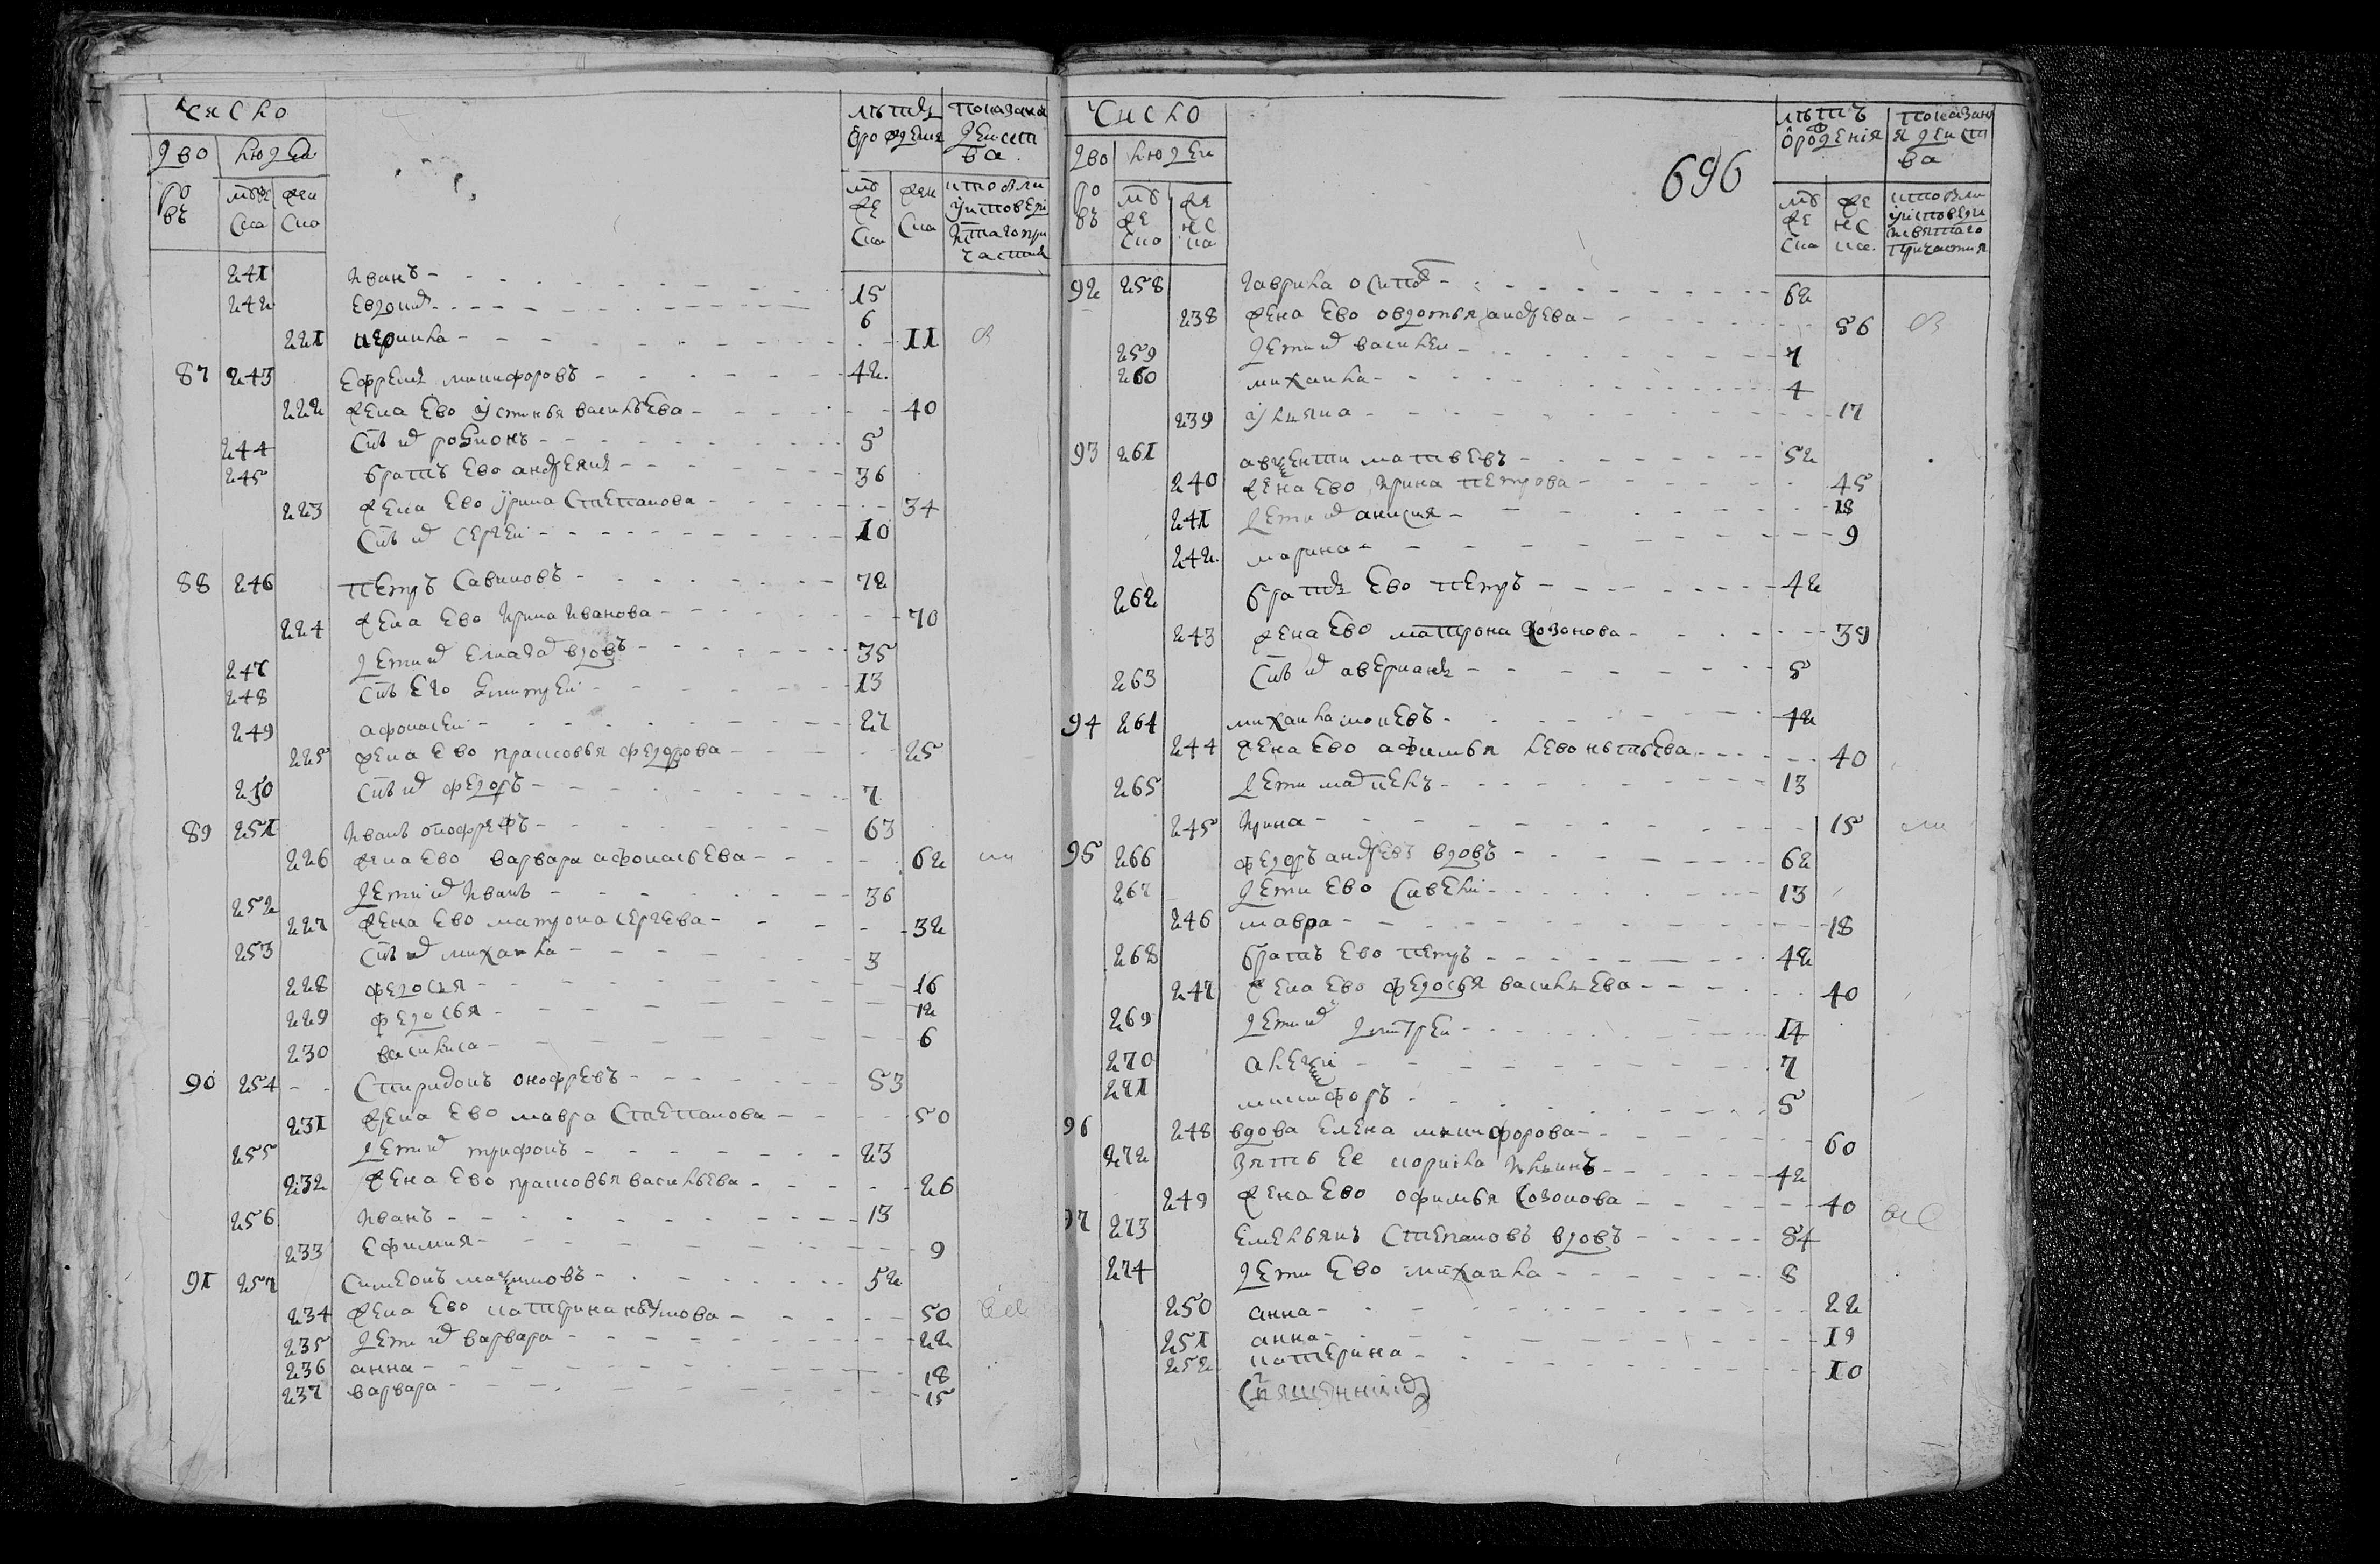 Число
дво
ровъ
людей
мужеска
женска
лѣтъ
отрождения
мужеска
женска
показание действа
кто были у исповеди и стаго причастия
241 Иванъ - 15
242 Евдоким - 6
221 кирилла - 11
87 243 Ефремъ никифоровъ - 42
222 жена Ево устинья васильева - 40
244 Снъ их родионъ - 5
245 братъ Ево андреянъ - 36
223 жена Ево ирина Степанова - 34
Снъ их Сергеи - 10
88 246 Петръ Савиновъ - 72
224 жена Ево Ирина Иванова - 70
247 дети их вдовъ - 35
248 Снъ Его дмитреи - 13
249 афонасеи - 27
225 жена Ево прасковья федорова - 25
250 Снъ их федоръ - 7
89 251 Иванъ онофреѳъ - 63
226 жена Ево варвара афонасьева - 62
252 дети их Иванъ - 36
227 жена Ево матрона Сергева - 32
253 Снъ их михаила - 3
228 федосья - 16
229 федосья - 12
230 василиса - 6
90 254 Спиридонъ онофревъ - 53
231 жена Ево мавра Степанова - 50
255 дети их трифонъ - 23
232 жена Ево прасковья васильева - 26
256 Иванъ - 13
233 Ефимия - 9
91 257 Симеонъ маѯимовъ - 52
234 жена Ево катерина наумова - 50
235 дети их варвара - 22
236 анна - 18
237 варвара - 15
Число
696
дво
ровъ
людеи
мужеска
женска
лѣтъ
отрождения
мужеска
женска
показания действа
кто были у исповеди и святаго причастия
92 258 гаврила осипов - 62
238 жена Ево овдотья андрева - 56
259 дети их василеи - 7
260 михаила - 4
239 ульяна - 17
93 261 авѯенти матвѣевъ - 52
240 жена Ево Ирина петрова - 45
241 дети их анисия - 18
242 марина - 9
262 братъ Ево петръ - 42
243 жена Ево матрона Созонова - 39
263 Снъ их аверианъ - 5
94 264 михаила - 42
244 жена Ево афимья левонтьева - 40
265 дети - 13
245 Ирина - 15
95 266 федоръ андревъ вдовъ - 62
267 дети Ево Савели - 13
246 мавра - 18
268 братъ Ево петръ - 42
247 жена Ево федосья васильева - 40
269 дети их дмитреи - 14
270 алеѯи - 7
271 никифоръ - 5
96 248 вдова Елена никифорова - 60
272 зять Ее корнила Ильинъ - 42
249 жена Ево офимья Созонова - 40
97 273 Емельянъ Степановъ вдовъ - 54
274 дети Ево михаила - 8
250 анна - 22
251 анна - 19
252 катерина - 10